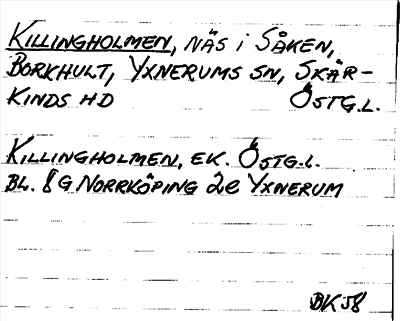 KILLINGHOLMEN, NÄS i SÅKEN,
BORKHULT, YXNERUMS SN, SKÄR-
KINDS HD ÖSTG.L.
KILLINGHOLMEN, EK. ÖSTG.L.
BL. 8G NORRKÖPING 2e YXNERUM
BK 58